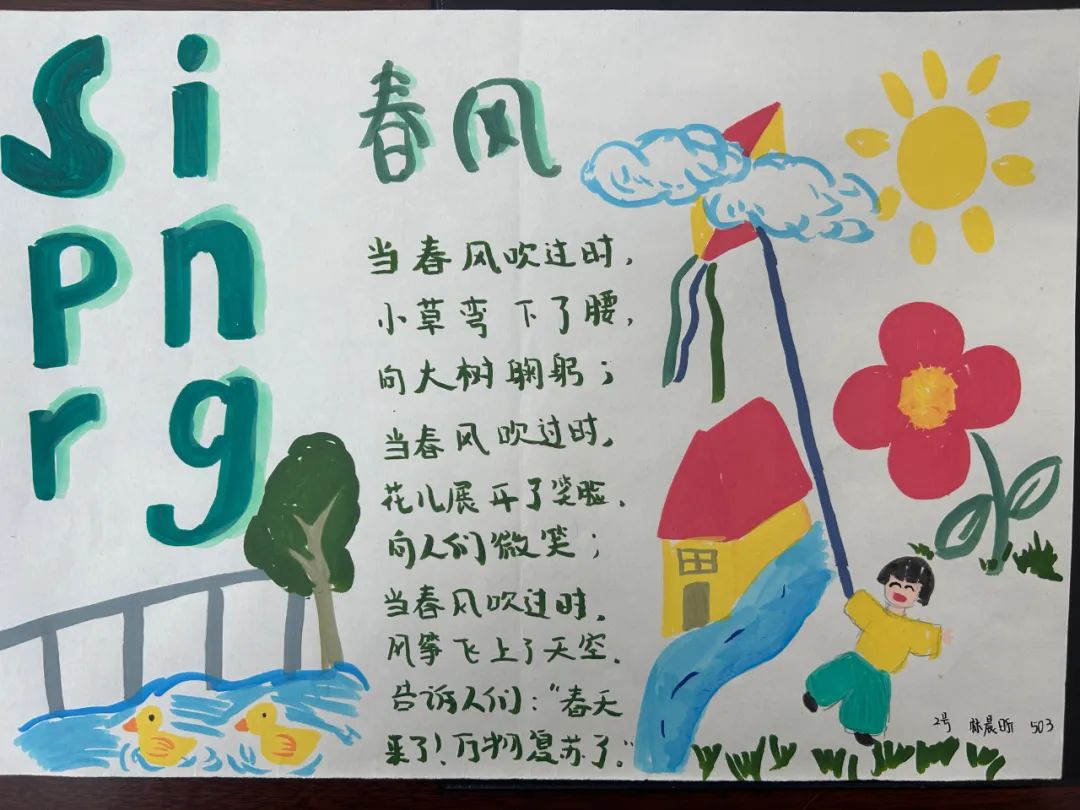 Spring
春风
当春风吹过时,
小草弯下了腰,
向大树鞠躬;
当春风吹过时,
花儿展开了笑脸,
向人们微笑;
当春风吹过时,
风筝飞上了天空,
告诉人们:“春天
来了!万物复苏了。”
2号 林晨昕 503